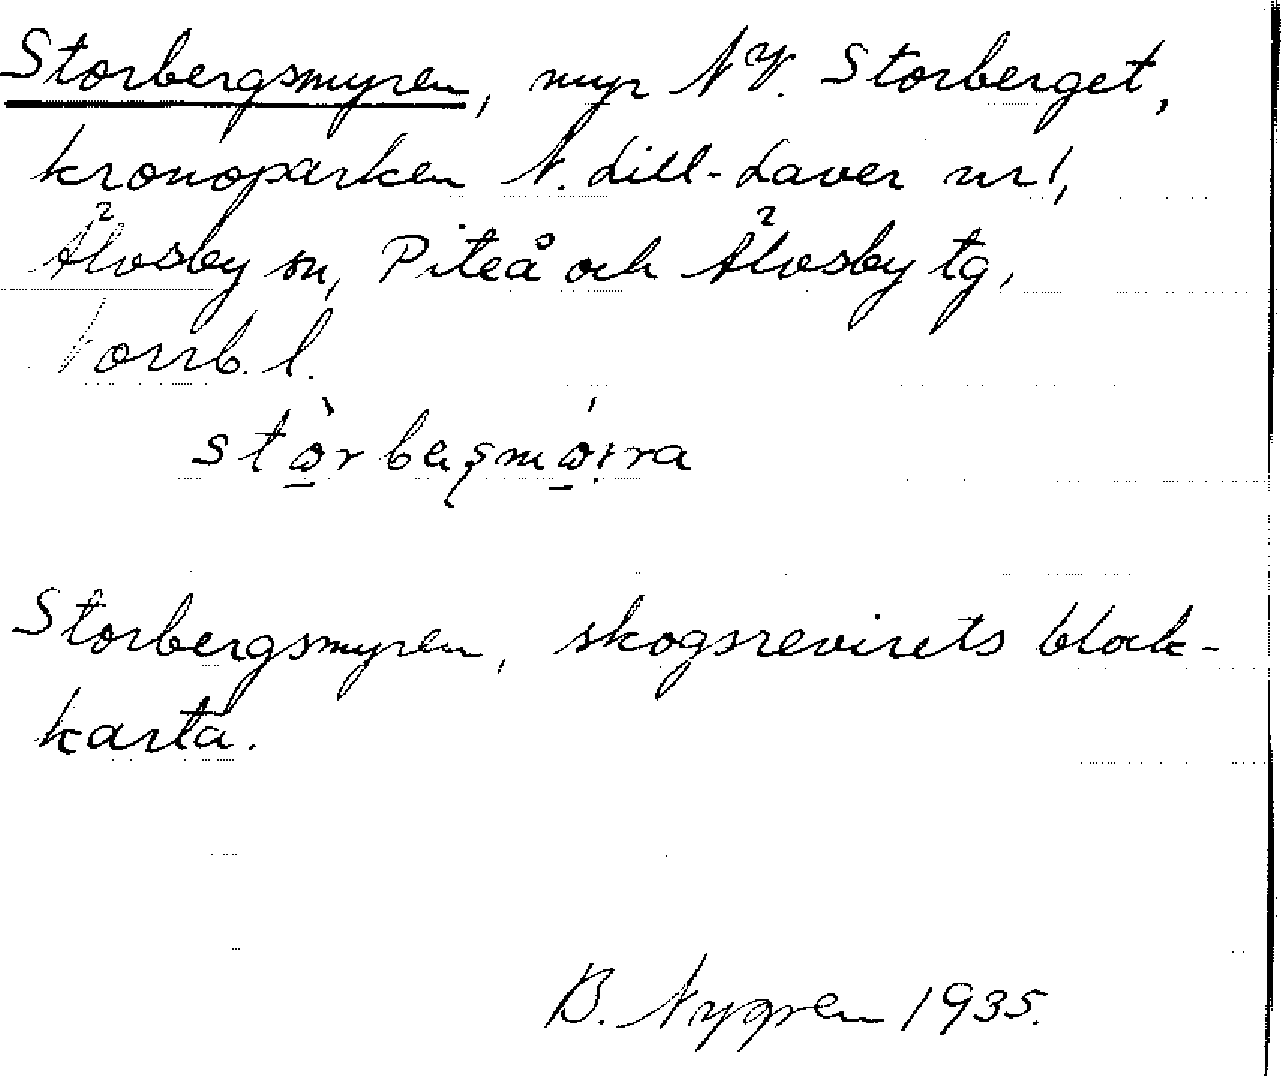 Storbergsmyren, myr NV. Storberget,
kronoparken N. Lill-Laver nr 1,
Älvsby sn, Piteå och Älvsby tg,
Norrb. l.
Storbergsmyren, skogsrevirets block-
karta.
B. Nygren 1935.